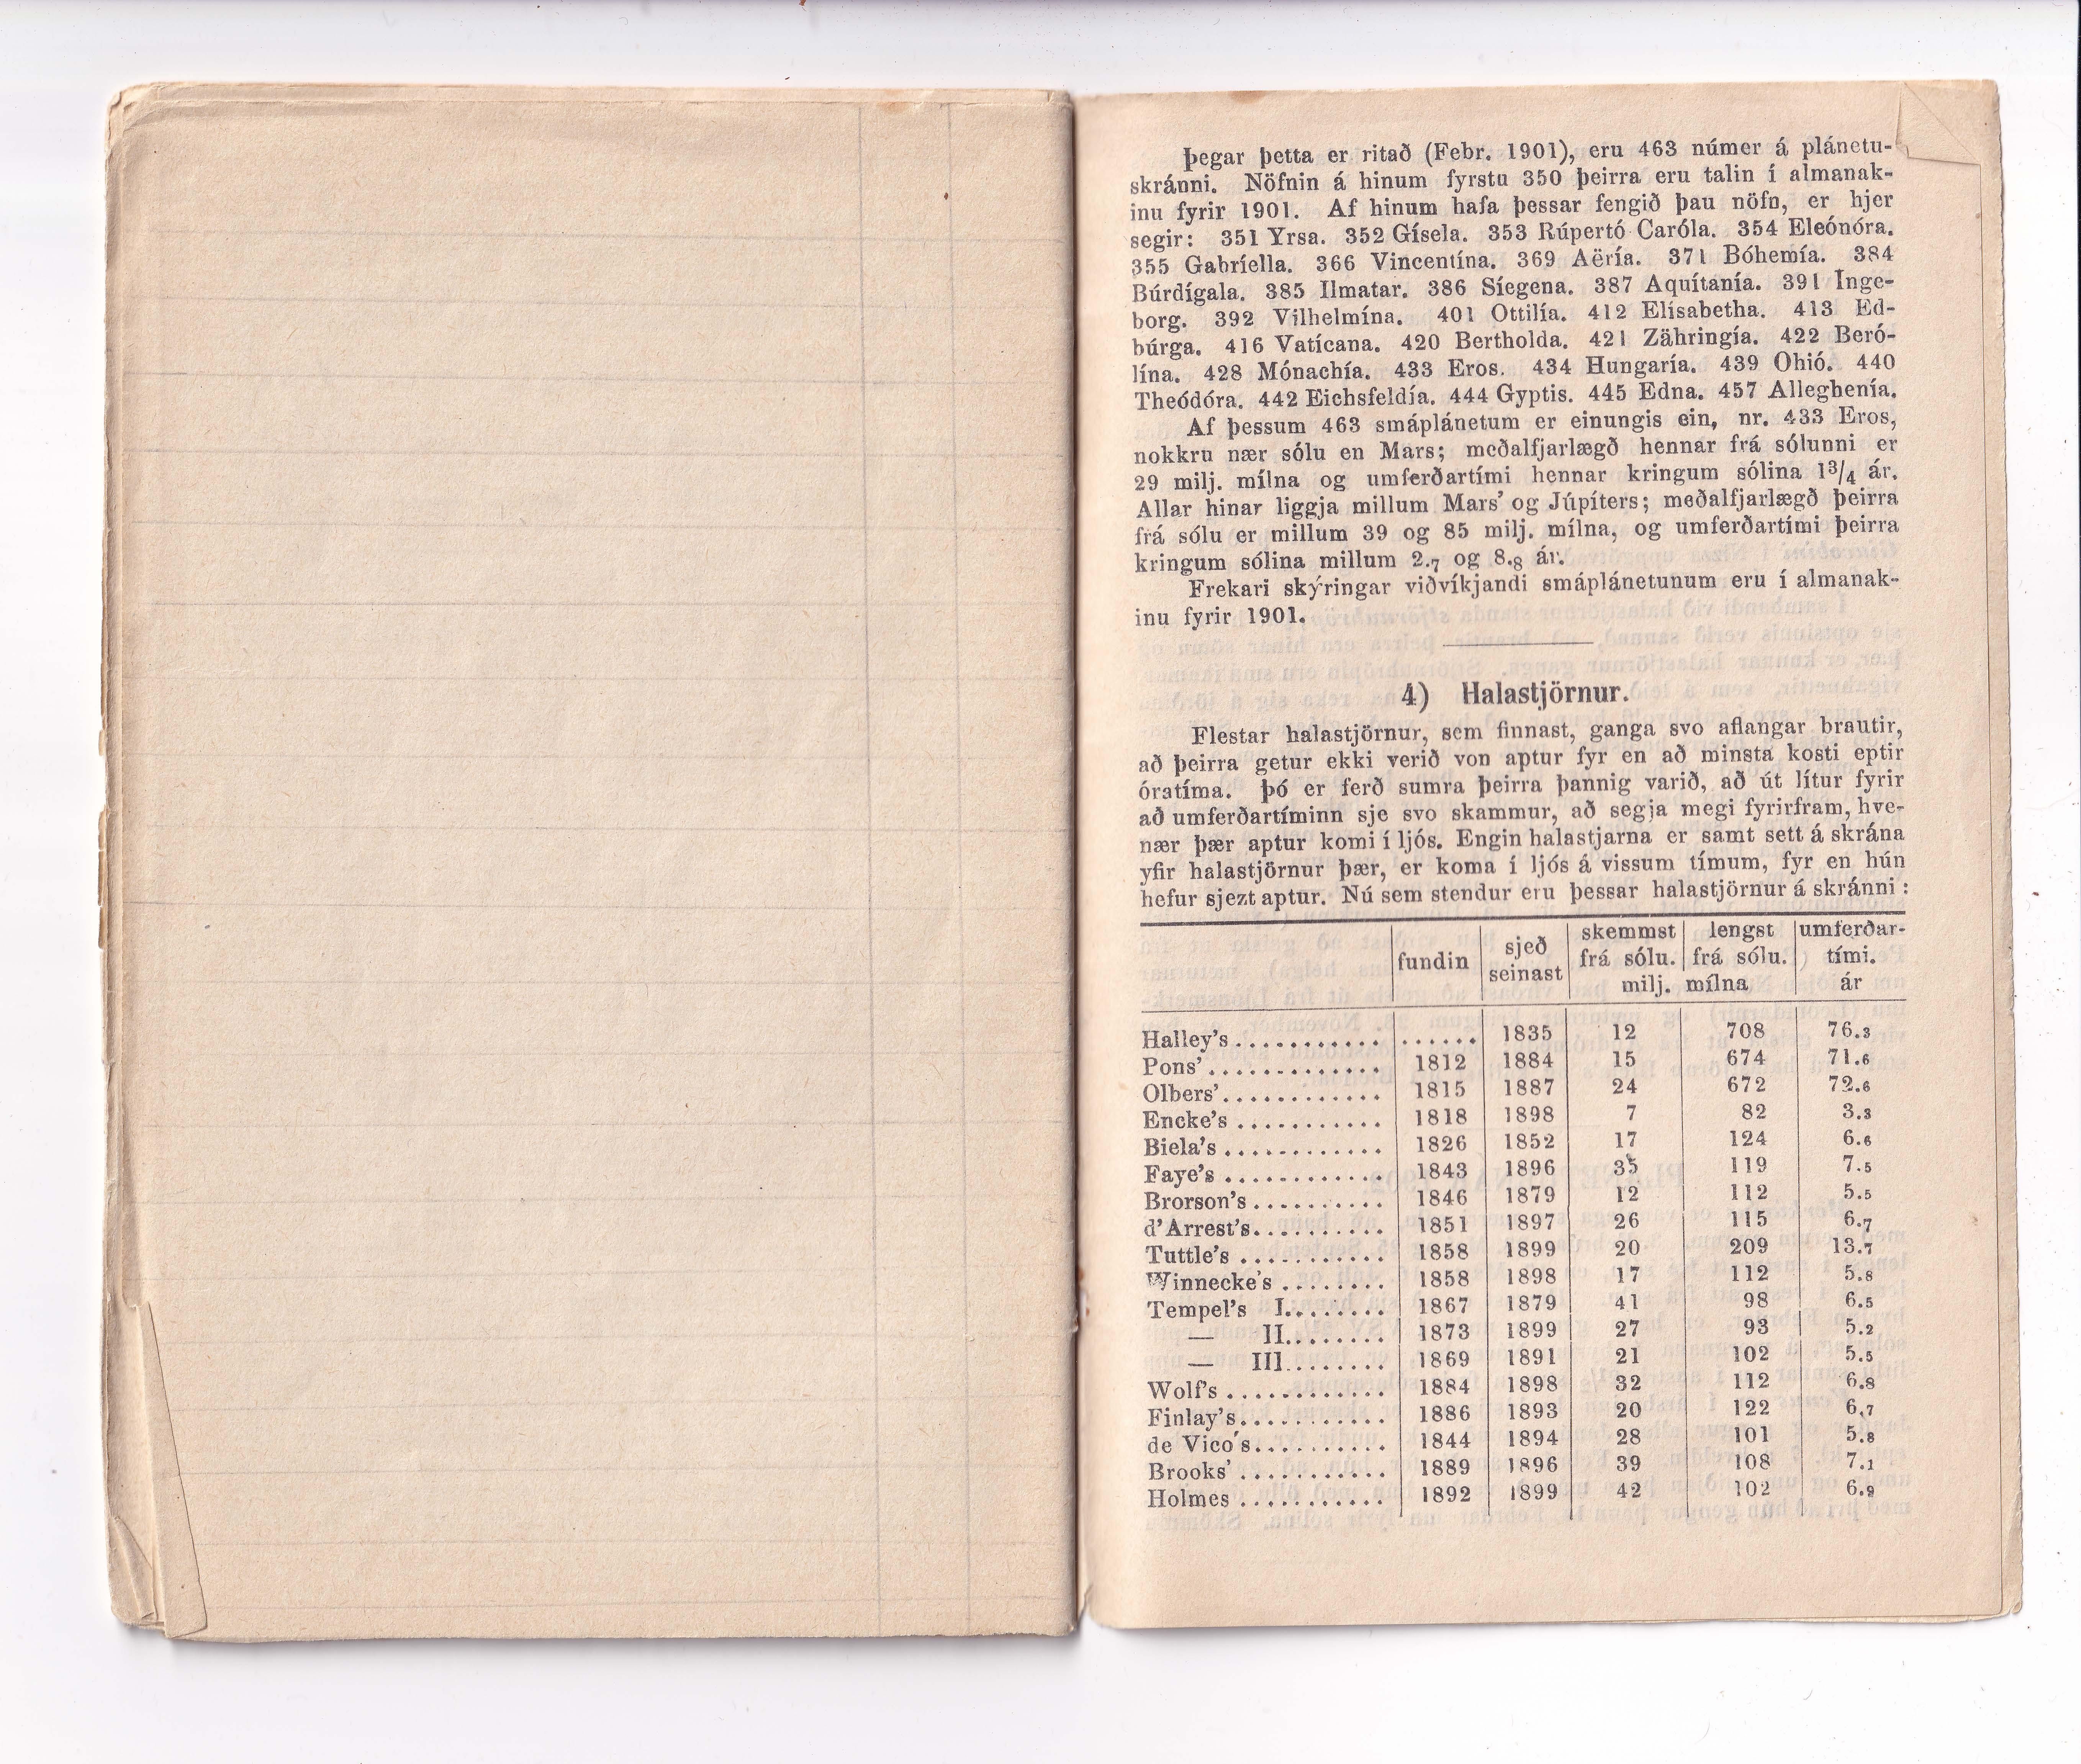 Þegar þetta er ritað (Febr. 1901), eru 463 númer á plánetu-
skránni. Nöfnin á hinum fyrstu 350 þeirra eru talin í almanak-
inu fyrir 1901. Af hinum hafa þessar fengið þau nöfn, er hjer
segir: 351 Yrsa. 352 Gísela. 353 Rúpertó Caróla. 354 Eleónóra.
355 Gabríella. 366 Vincentína. 369 Aëría. 371 Bóhemía. 384
Búrdígala. 385 Ilmatar. 386 Síegena. 387 Aquítanía. 391 Inge-
borg. 392 Vilhelmína. 401 Ottilía. 412 Elísabetha. 413 Ed-
búrga. 416 Vatícana. 420 Bertholda. 421 Zähringía. 422 Beró-
lína. 428 Mónachía. 433 Eros. 434 Hungaría. 439 Ohió. 440
Theódóra. 442 Eichsfeldía. 444 Gyptis. 445 Edna. 457 Alleghenía.
Af þessum 463 smáplánetum er einungis ein, nr. 433 Eros,
nokkru nær sólu en Mars; meðalfjarlægð hennar frá sólunni er
29 milj. mílna og umferðartími hennar kringum sólina 1³/₄ ár.
Allar hinar liggja millum Mars' og Júpíters; meðalfjarlægð þeirra
frá sólu er millum 39 og 85 milj. mílna, og umferðartími þeirra
kringum sólina millum 2.₇ og 8.₈ ár.
Frekari skýringar viðvíkjandi smáplánetunum eru í almanak-
inu fyrir 1901.
4) Halastjörnur.
Flestar halastjörnur, sem finnast, ganga svo aflangar brautir,
að þeirra getur ekki verið von aptur fyr en að minsta kosti eptir
óratíma. Þó er ferð sumra þeirra þannig varið, að út lítur fyrir
að umferðartíminn sje svo skammur, að segja megi fyrirfram, hve-
nær þær aptur komi í ljós. Engin halastjarna er samt sett á skrána
yfir halastjörnur þær, er koma í ljós á vissum tímum, fyr en hún
hefur sjezt aptur. Nú sem stendur eru þessar halastjörnur á skránni:
fundin sjeð seinast skemmst frá sólu. lengst frá sólu. umferðar-tími.
milj. mílna ár
Halley's ........... ...... 1835 12 708 76.₃
Pons' ............. 1812 1884 15 674 71.₆
Olbers' ............ 1815 1887 24 672 72.₆
Encke's ........... 1818 1898 7 82 3.₃
Biela's ............ 1826 1852 17 124 6.₆
Faye's ............ 1843 1896 35 119 7.₅
Brorson's .......... 1846 1879 12 112 5.₅
d'Arrest's .......... 1851 1897 26 115 6.₇
Tuttle's ........... 1858 1899 20 209 13.₇
Winnecke's ........ 1858 1898 17 112 5.₈
Tempel's I ........ 1867 1879 41 98 6.₅
— II ........ 1873 1899 27 93 5.₂
— III ........ 1869 1891 21 102 5.₅
Wolf's ............ 1884 1898 32 112 6.₈
Finlay's ........... 1886 1893 20 122 6.₇
de Vico's .......... 1844 1894 28 101 5.₈
Brooks' ........... 1889 1896 39 108 7.₁
Holmes ........... 1892 1899 42 102 6.₉